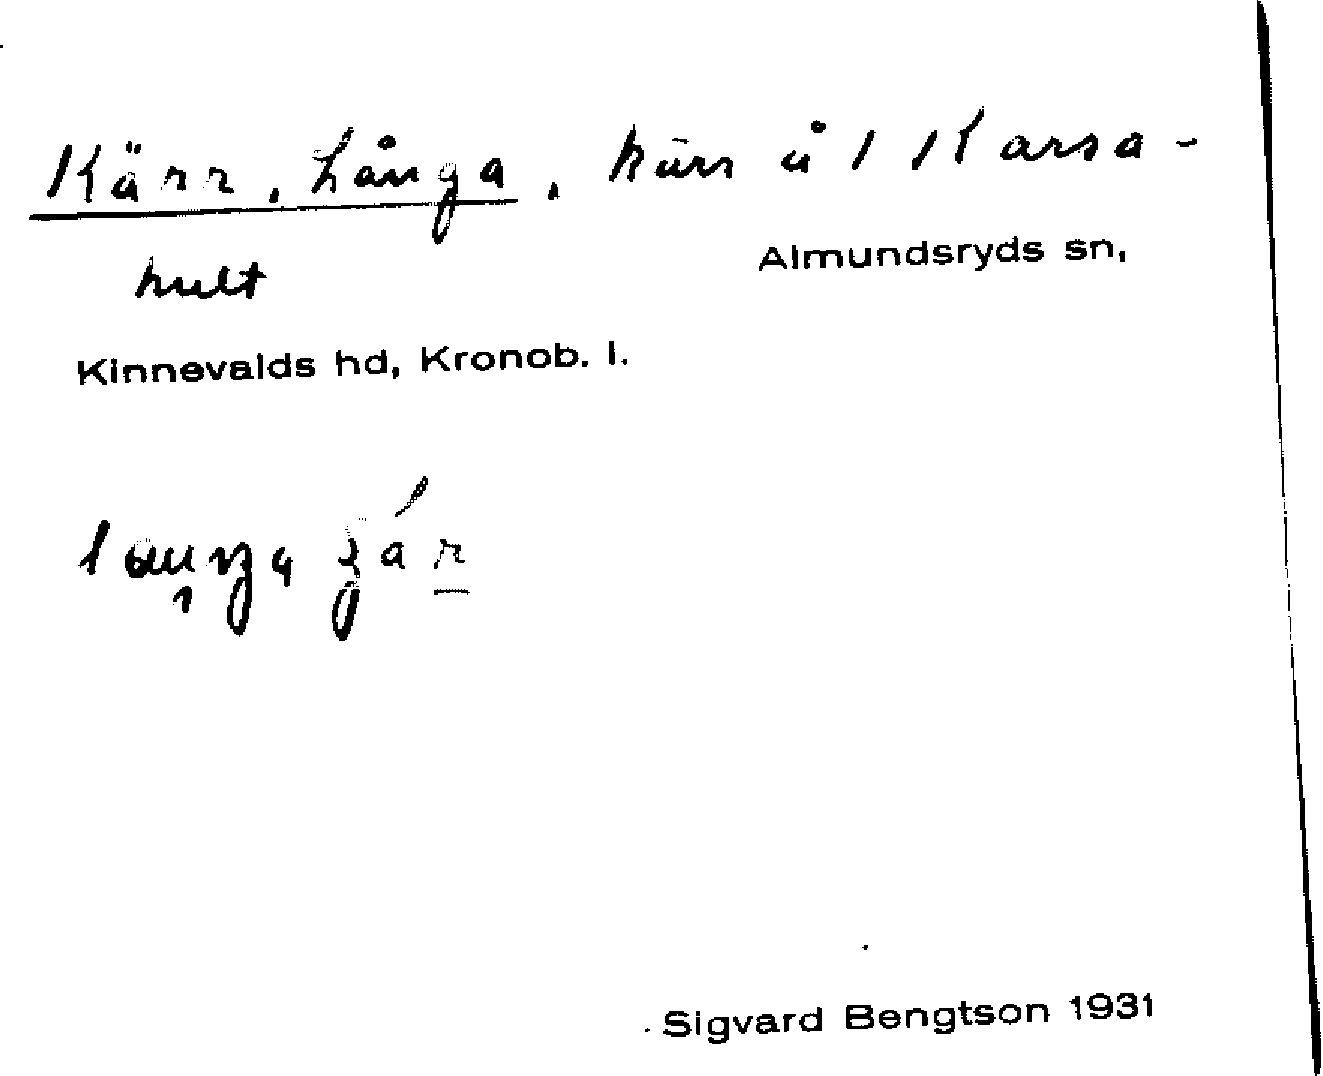 Kärr, Långa, kärr å 1 Karsa-
hult
Almundsryds sn,
Kinnevalds hd, Kronob. l.
Sigvard Bengtson 1931